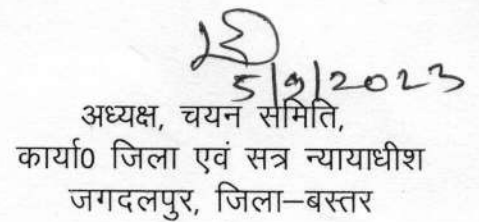 5/9/2023
अध्यक्ष, चयन समिति,
कार्या0 जिला एवं सत्र न्यायाधीश
जगदलपुर, जिला–बस्तर